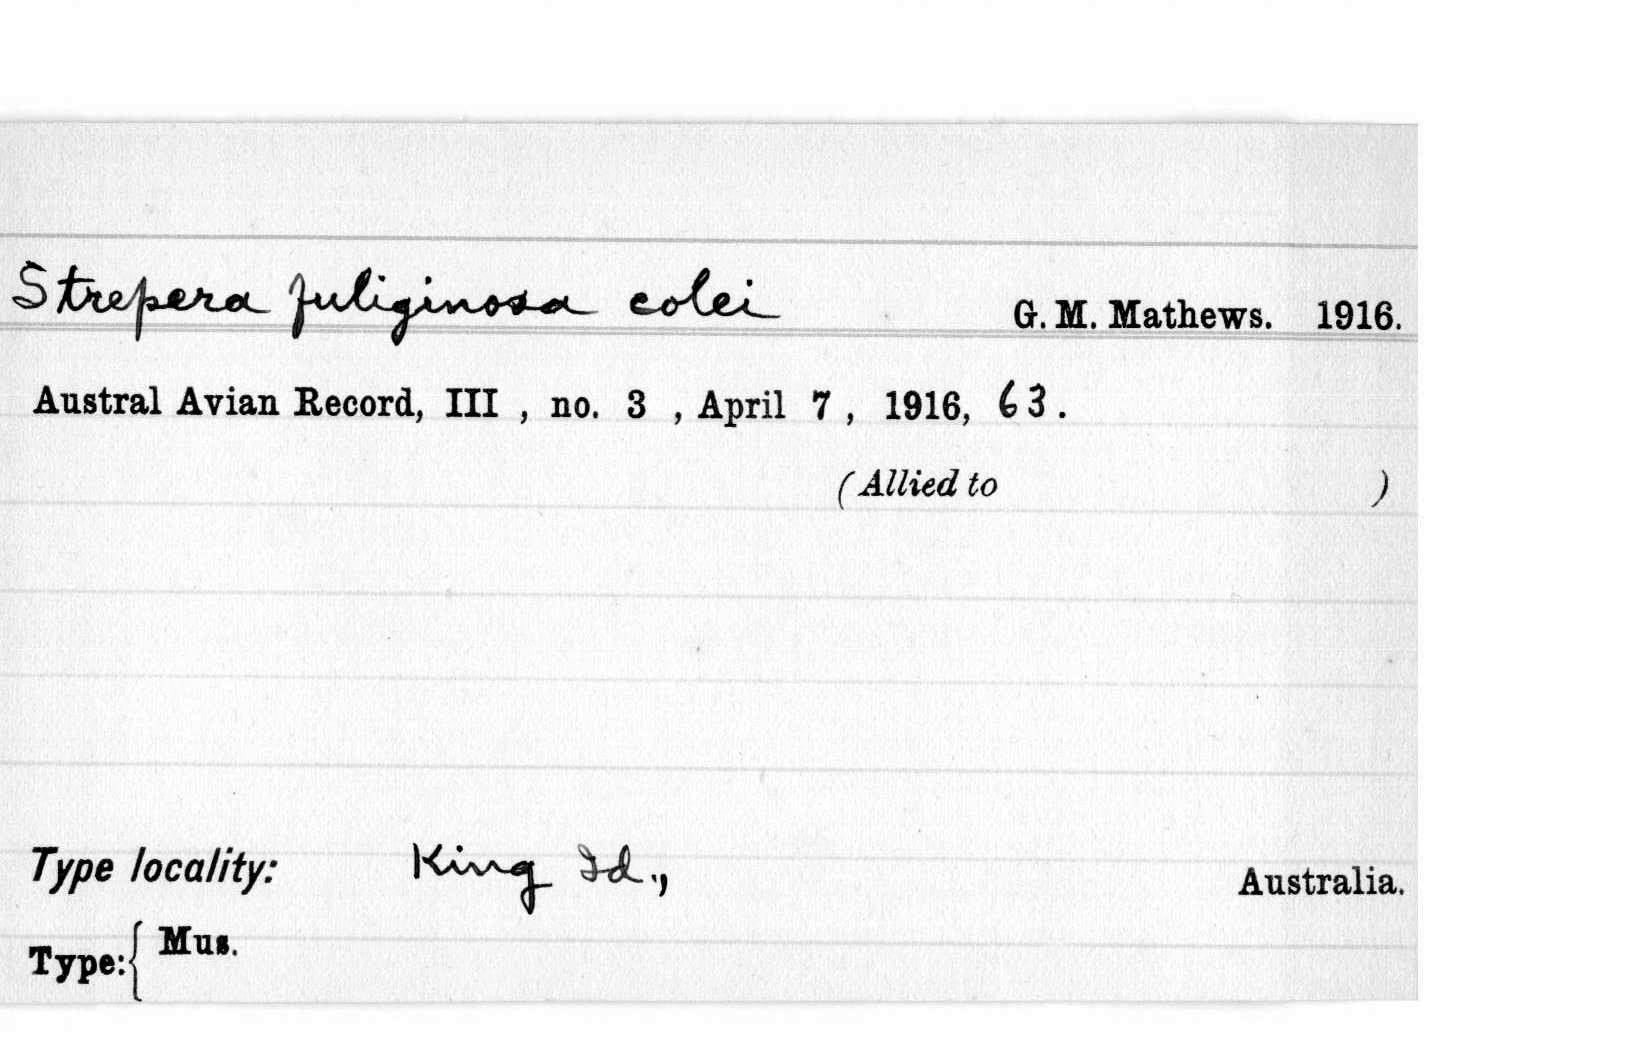 Strepera fuliginosa colei G. M. Mathews. 1916.
Austral Avian Record, III , no. 3 , April 7 , 1916, 63 .
(Allied to )
Type locality: King Id., Australia.
Type:{ Mus.